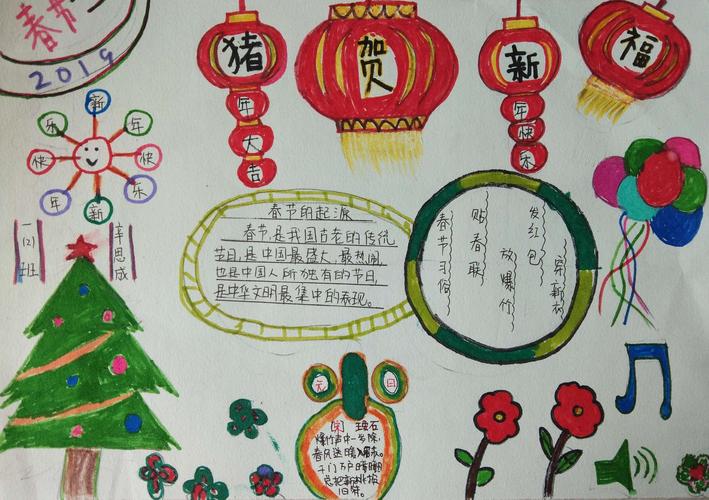 春节
2019
猪年大吉
贺
新年快乐
福
新
年
快
乐
新
年
快
乐
一(2)班
辛思成
春节的起源
春节,是我国古老的传统
节日,是中国最盛大、最热闹
也是中国人所独有的节日,
是中华文明最集中的表现。
春节习俗
贴春联
放爆竹
发红包
穿新衣
元日
(宋) 王安石
爆竹声中一岁除,
春风送暖入屠苏。
千门万户曈曈
总把新桃换
旧符。